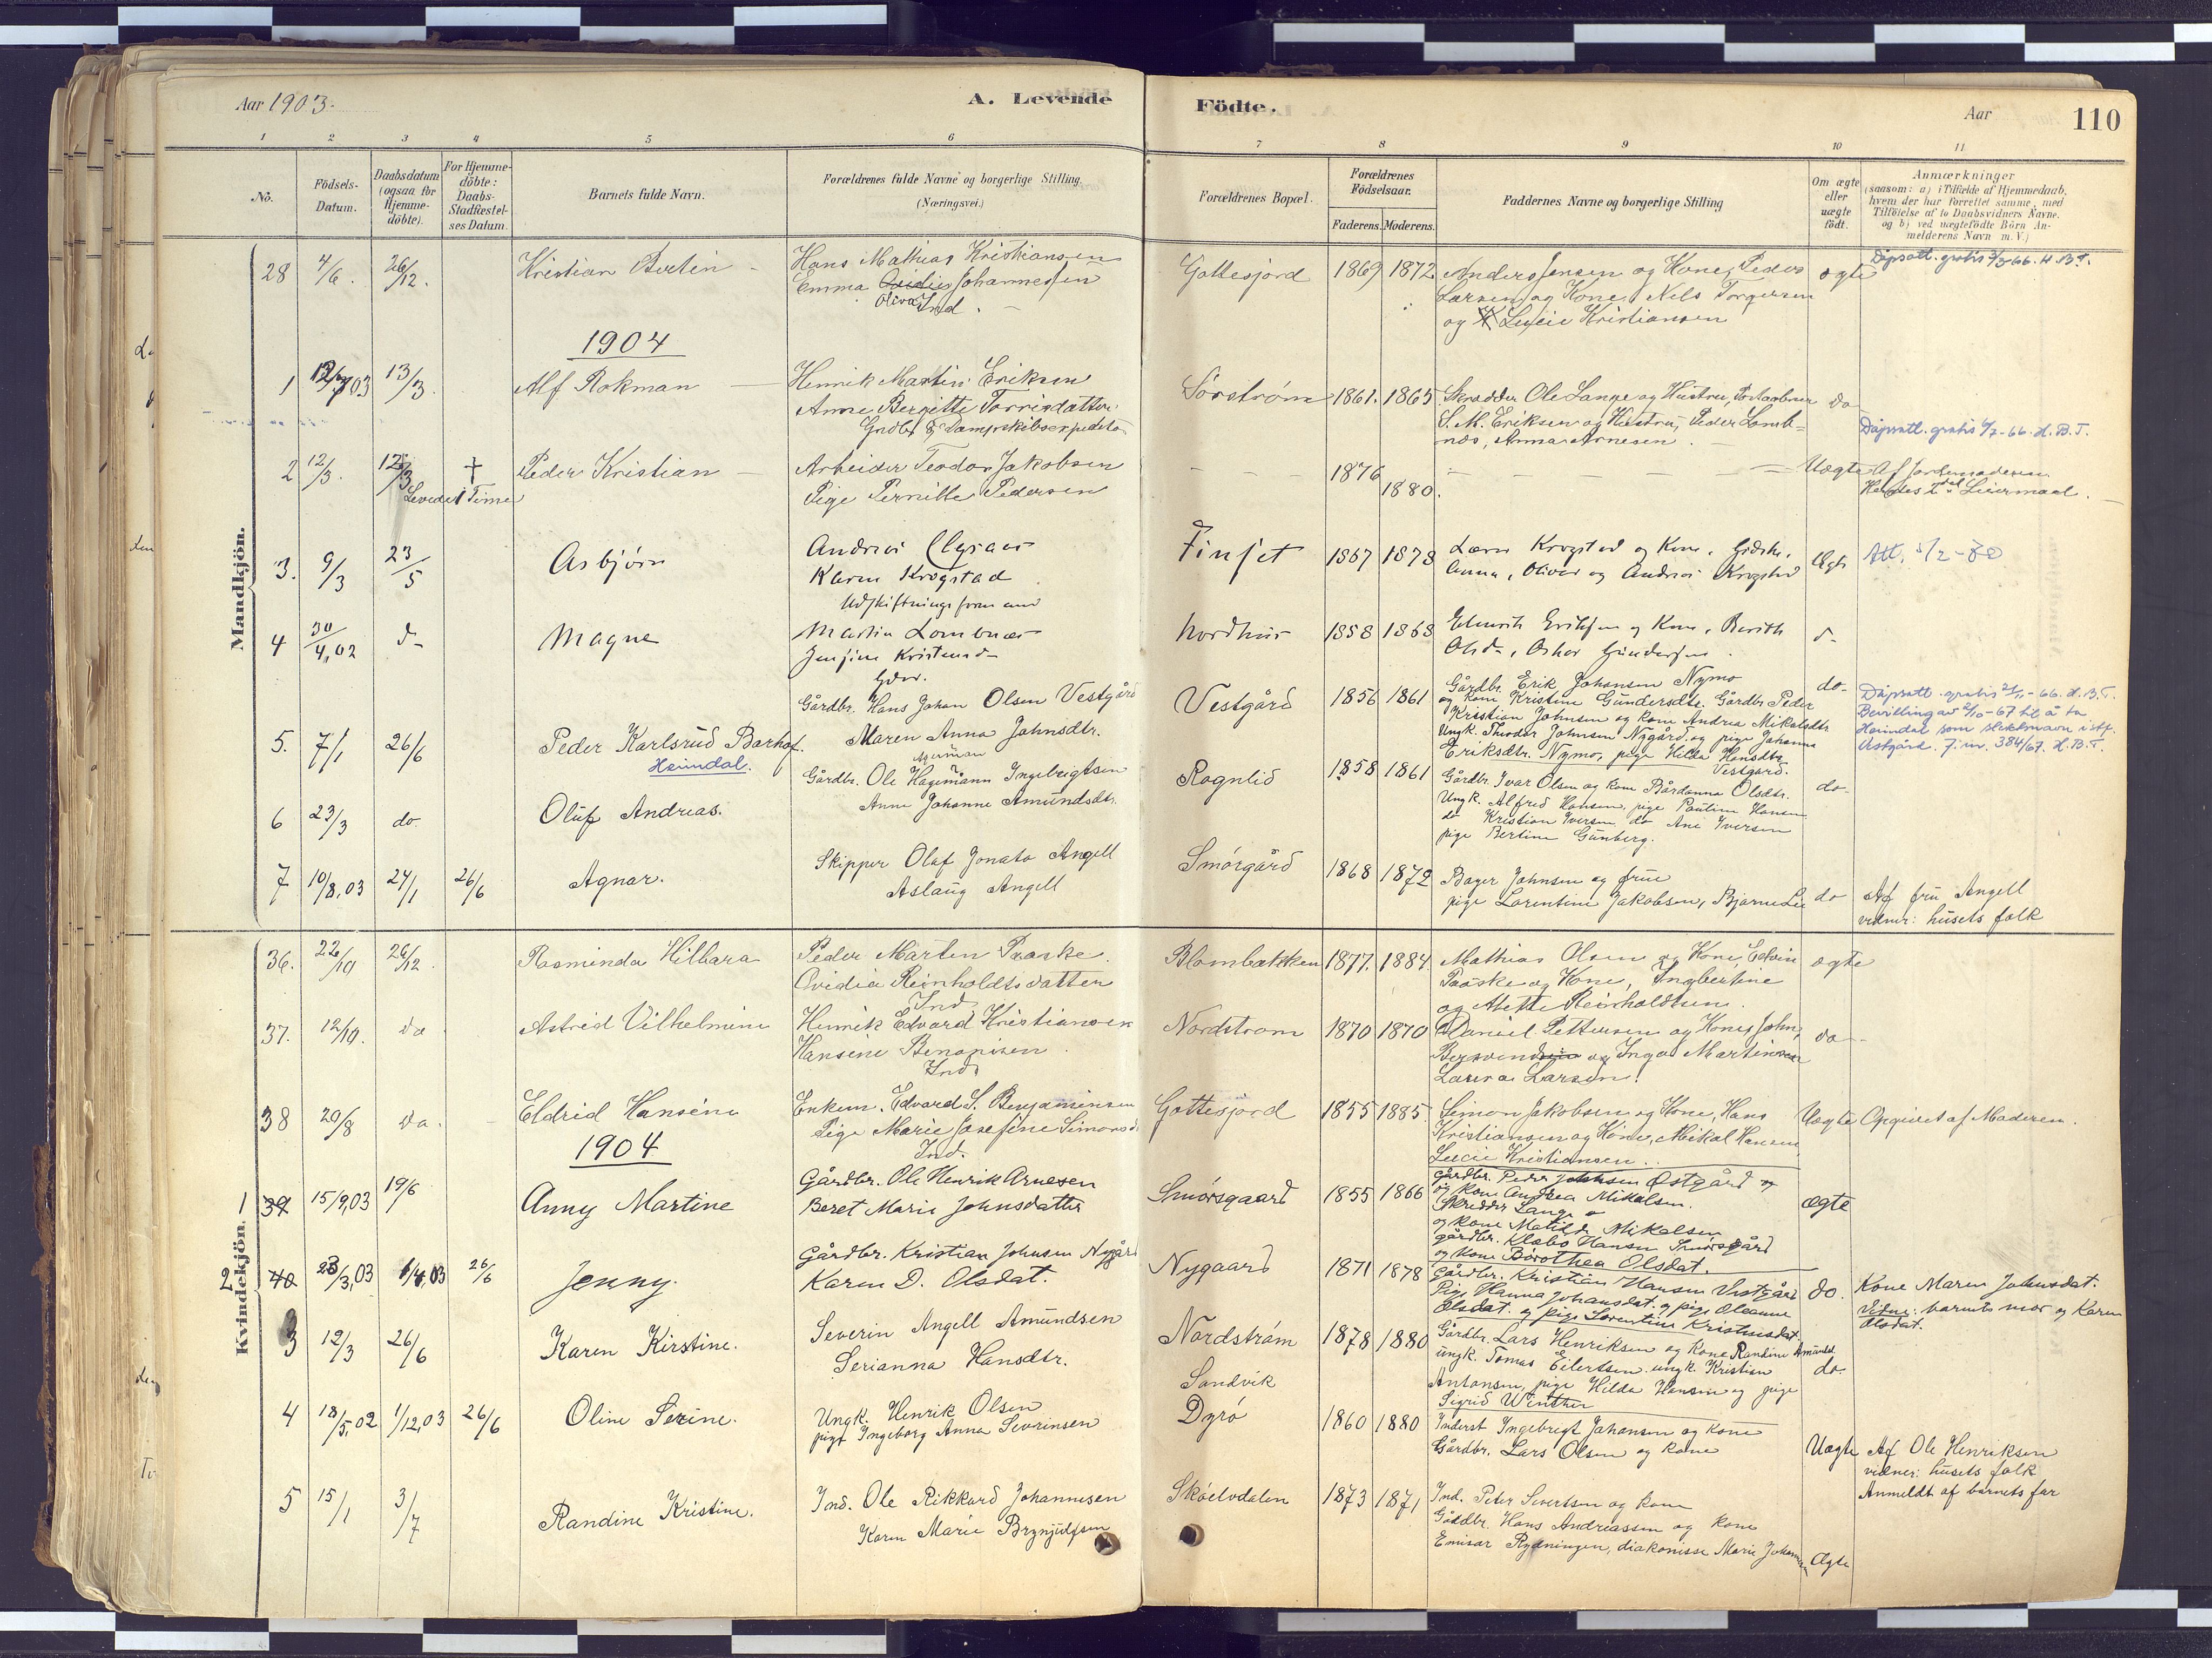 Aar 1903.
A. Levende
Födte.
Aar
110
1 2 3 4 5 6 7 8 9 10 11
No.
Födsels-Datum.
Daabsdatum (ogsaa for Hjemme-döbte).
For Hjemme-döbte: Daabs-Stadfæstel-ses Datum.
Barnets fulde Navn.
Forældrenes fulde Navne og borgerlige Stilling. (Næringsvei.)
Forældrenes Bopæl.
Forældrenes Födselsaar.
Faderens. Moderens.
Faddernes Navne og borgerlige Stilling
Om ægte eller uægte födt.
Anmærkninger
(saasom: a) i Tilfælde af Hjemmedaab,
hvem der har forrettet samme, med
Tilföielse af to Daabsvidners Navne.
og b) ved uægtefödte Börn An-
melderens Navn m. V.)
Mandkjön.
28 4/6. 26/12. Kristian Bertin - Hans Mathias Kristiansen Gottesjord 1869 1872 Anders Jensen og Kone, Peder ægte Dåpsatt. gratis 2/5-66. H.B.T.
Emma Ovidie Johannesen Larsen og Kone, Nels Torgersen
Oliva Ind. og Lucie Kristiansen
1904
1 03 13/3. Alf Rokman - Henrik Martin Eriksen Sörström 1861. 1865 Skrædder Ole Lange og Hustru, do
Anne Bergitte Torrisdatter S. M. Eriksen og Hustru, Peder Lomb-
Gndbr & Dampskibsexpeditör nes, Anna Arnesen. Dåpsatt. gratis 6/7-66. H.B.T.
2 12/3. 12/3 † Peder Kristian - Arbeider Teodor Jakobsen 1876 Uægte Af Jordemoderen
Levede 1 Time Pige Pernille Pedersen 1880. Hendes 2det Leiermaal.
3. 9/3 23/5 Asbjørn Andreas Finset 1867 1878 Lærer Krogstad og Kone, Ægte Att. 5/2-80
Karen Krogstad Anna, Oliver og Andreas Krogstad
Udskiftningsformand
4 30/4,02 do Magne Martin Lombnæs Nordhus 1858 1868 Henrik Eriksen og Kone, Berith do
Jensine Kristensd. Olsd., Oskar Gundersen.
Gbr.
5. 7/1 26/6 Peder Karlsrud Barhof. Gårdbr. Hans Johan Olsen Vestgård Vestgård 1856 1861 Gårdbr. Erik Johansen Nymo do-
Heimdal. Maren Anna Johnsdtr. og kone Kristine Gundersdtr. Gårdbr. Peder
Kristian Johnsen og kone Andrea Mikalsdtr.
Ungk. Theodor Johnsen Nygård og pige Johanna
Eriksdtr. Nymo, pige Hilda Hansdtr.
Vestgård.
Dåpsatt. gratis 21/11-66. H.B.T.
Bevilling av 2/10-67 til å ta
Heimdal som slektsnavn istf.
Vestgård. J.nr. 384/67. H.B.T.
6 23/3 do Oluf Andreas. Gårdbr. Ole Hagemann Ingebrigtsen Rognlid 1858 1861 Gårdbr. Ivar Olsen og kone Bårdanna Olsdtr. do-
Anne Johanne Amundsdtr. Ungk. Alfred Hansen, pige Pauline Hansen
do Kristian Iversen do Ane Iversen
pige Bertine Gunberg.
7 10/8,03 24/1 26/6 Agnar. Skipper Olaf Jonats Angell Smórgård 1868 1872 Bager Johnsen og frue
Aslaug Angell pige Lorentine Jakobsen, Bjarne Lie do Af fru Angell
vidner: husets folk
Kvindekjön.
36. 22/10 26/12. Rasminda Hilbara Peder Marten Paaske. Blombakken 1877. 1884. Mathias Olsen og Kone, Edvin ægte
Ovidia Reinholdtsdatter Paaske og Kone, Ingbertine
Ind. og Mette Reinholdtsen.
37. 12/10. do Astrid Vilhelmine Henrik Edvard Kristiansen Nordstrom 1870 1870 Daniel Pettersen og Kone, John, do-
Hansine Benonisen. og Inga Martinsen
Ind. Laura Larsen.
38 20/8 do. Eldrid Hansine Enkem. Edvard S. Benjaminsen Gottesjord 1855 1885. Simon Jakobsen og Kone, Hans Uægte Opgivet af Moderen.
Pige Marie Josefine Simonsd. Kristiansen og Kone, Mikal Hansen
Ind. Lucie Kristiansen.
1904
1 39 15/9,03 19/6 Anny Martine Gårdbr. Ole Henrik Arnesen Smórsgaard 1855 1866 Gårdbr. Peder Johnsen Østgård og ægte
Beret Marie Johnsdatter og kone Andrea Mikalsen.
Skredder Lange
og kone Matilde Mikalsen
gårdbr. Klæbo Hansen Smórsgård
og kone Bórothea Olsdat.
2 40 23/3,03 1/4,03 26/6 Jenny. Gårdbr. Kristian Johnsen Nygård Nygaard 1871 1878 Gårdbr. Kristian Hansen Vestgård do. Kone Maren Johnsdat.
Karen D. Olsdat. Pige Hanna Johansdat. og pige Oleanne
Olsdat. og pige Lorentine Kristensdat.
Vidner: barnets mor og Karen
Olsdat.
3 12/3 26/6 Karen Kirstine. Severin Angell Amundsen Nordström 1878 1880 Gårdbr. Lars Henriksen og Kone Randine Amundsd. do-
Serianna Hansdtr. Sandvik ungk. Tomas Eilertsen ungk. Kristian
Antonsen, pige Hilda Hansen og pige
Sigrid Winther
4 18/5,02 1/12,03 26/6 Oline Serine. Ungk. Henrik Olsen Dyró 1860 1880 Inderst Ingebregt Johansen og kone
pige Ingeborg Anna Sevrinsen Gårdbr. Lars Olsen og kone Uægte Af Ole Henriksen
vidner: husets folk
Anmeldt af barnets far
5 15/1 3/7 Randine Kristine. Ind. Ole Rikkard Johannesen Skóelvdalen 1873 1871 Ind. Peter Sivertsen og kone
Karen Marie Brynjulfsen Gårdbr. Hans Andreassen og kone
Emisær Rydningen, diakonisse Marie Johansen Ægte